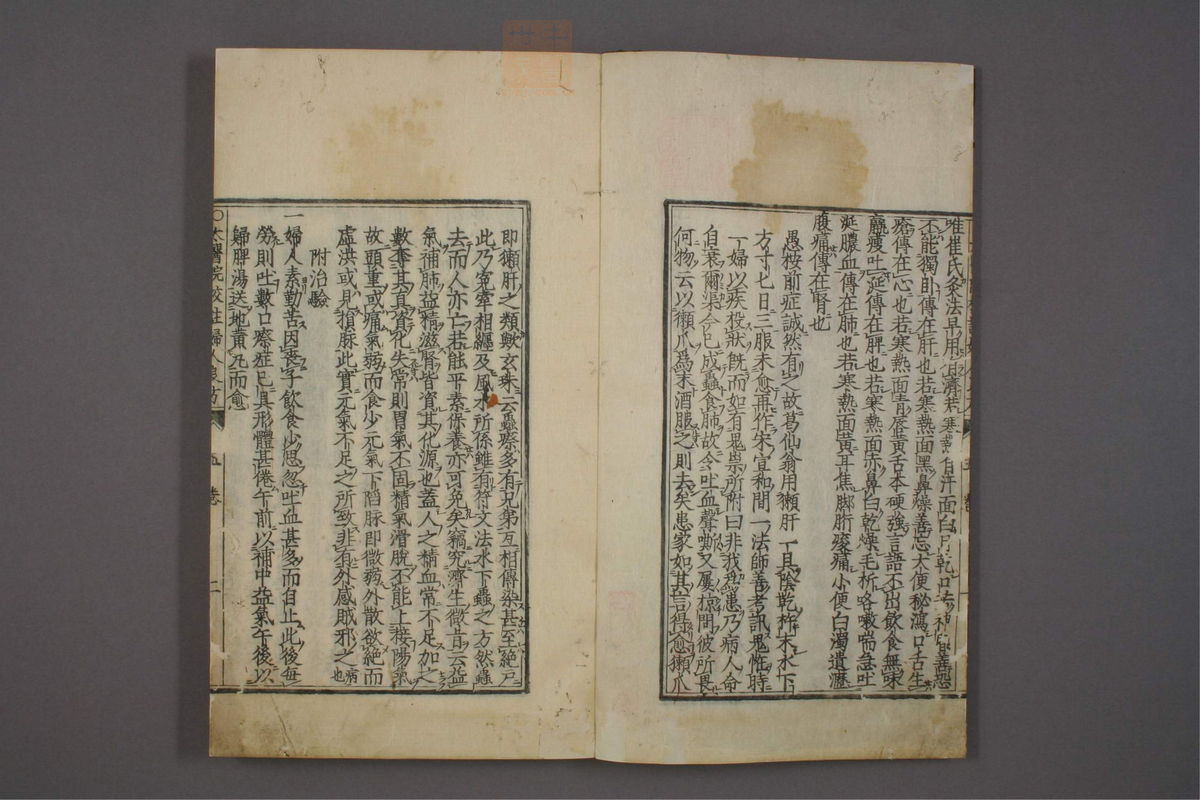 唯崔氏灸法早用有濟若寒熱自汗面白目乾口苦善恐
不能獨卧傳在肝也若寒熱面黑鼻燥善忘大便秘瀉口舌生
瘡傳在心也若寒熱面青唇黄舌本硬強言語不出飲食無味
羸瘦吐涎傳在脾也若寒熱面赤鼻白乾燥毛折咯嗽喘急吐
涎膿血傳在肺也若寒熱面黄耳焦脚胻痠痛小便白濁遺瀝
腹痛傳在腎也
愚按前症誠然有之故葛仙翁用獺肝一具陰乾杵末水下
方寸七日三服未愈再作宋宣和間一法師善考訊鬼怪時
一婦以疾投狀既而如有鬼祟所附曰非我為患乃病人命
自衰爾渠今已成蟲食肺故令吐血聲嘶又屢掠問彼所畏
何物云以獺爪爲末酒服之則去矣患家如其言得愈獺爪
即獺肝之類歟玄珠云蟲瘵多有兄弟互相傳染甚至絶戸
此乃冤牽相纏及風水所係雖有符文法水下蟲之方然蟲
去而人亦亡若能平素保養亦可免矣竊究濟生微旨云益
氣補肺益精滋腎皆資其化源也蓋人之精血常不足加之
數奪其真資化失常則胃氣不固精氣滑脱不能上接陽氣
故頭重或痛氣弱而食少元氣下陷脉即微弱外散欲絶而
虚洪或見損脉此實元氣不足之所致非有外感賊邪之病也
附治驗
一婦人素勤苦因喪子飲食少思忽吐血甚多而自止此後毎
勞則吐數口瘵症已具形體甚倦午前以補中益氣午後以
歸脾湯送地黄丸而愈
○太醫院校註婦人良方 五卷 二